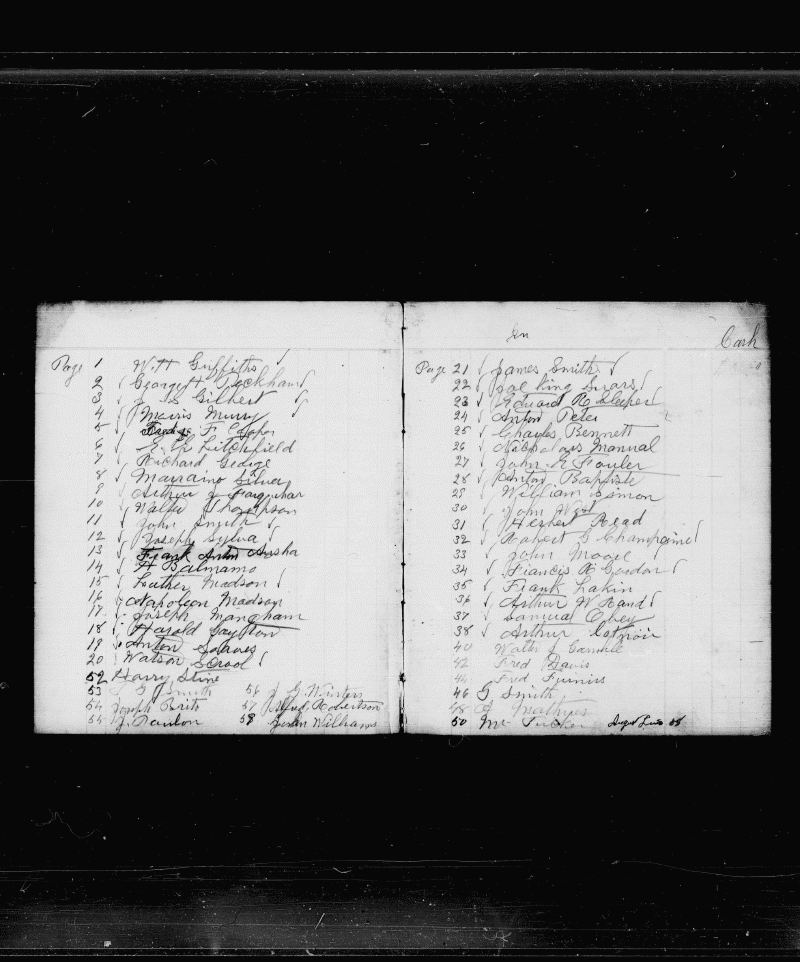 Page 1 W. H. Griffiths
2 George H Peckham
3 J S Gilbert
4 Morris Murry
5 F Cooper
6 Litchfield
7 Richard George
8 Marraino Silvey
9 Arthur J Farquhar
10 Walter Thompson
11 John Smith
12 Joseph Sylva
13 Frank Anton
14 H Balmamo
15 Luther Madson
16 Napoleon Madson
17 Joseph Mangham
18 Harold Gayton
19 Anton
20 Watson
52 Harry Stine
53 Smith 56 J. G. Winters
54 Joseph Brito 57 Alfred Robertson
55 J. Paulon 58 John Williams
Cash
Page 21 James Smith
22 Joe King
23 Edward R Sleeper
24 Anton Peter
25 Charles Bennett
26 Nicholas Manual
27 John Fowler
28 Anton Baptiste
29 William Simon
30 John West
31 Herbert Read
32 Robert G Champaine
33 John Moore
34 Francis R Gordon
35 Frank Lakin
36 Arthur W Rand
37 Samual
38 Arthur
40 Walter J Gamble
42 Fred Davis
44 Fred Furniss
46 G Smith
48 J Mathies
50 Mc Tucker 58